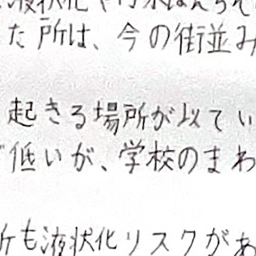 液状化や内水はんらん
た所は、今の街並み
起きる場所が似てい
低いが、学校のまわ
所も液状化リスクがあ